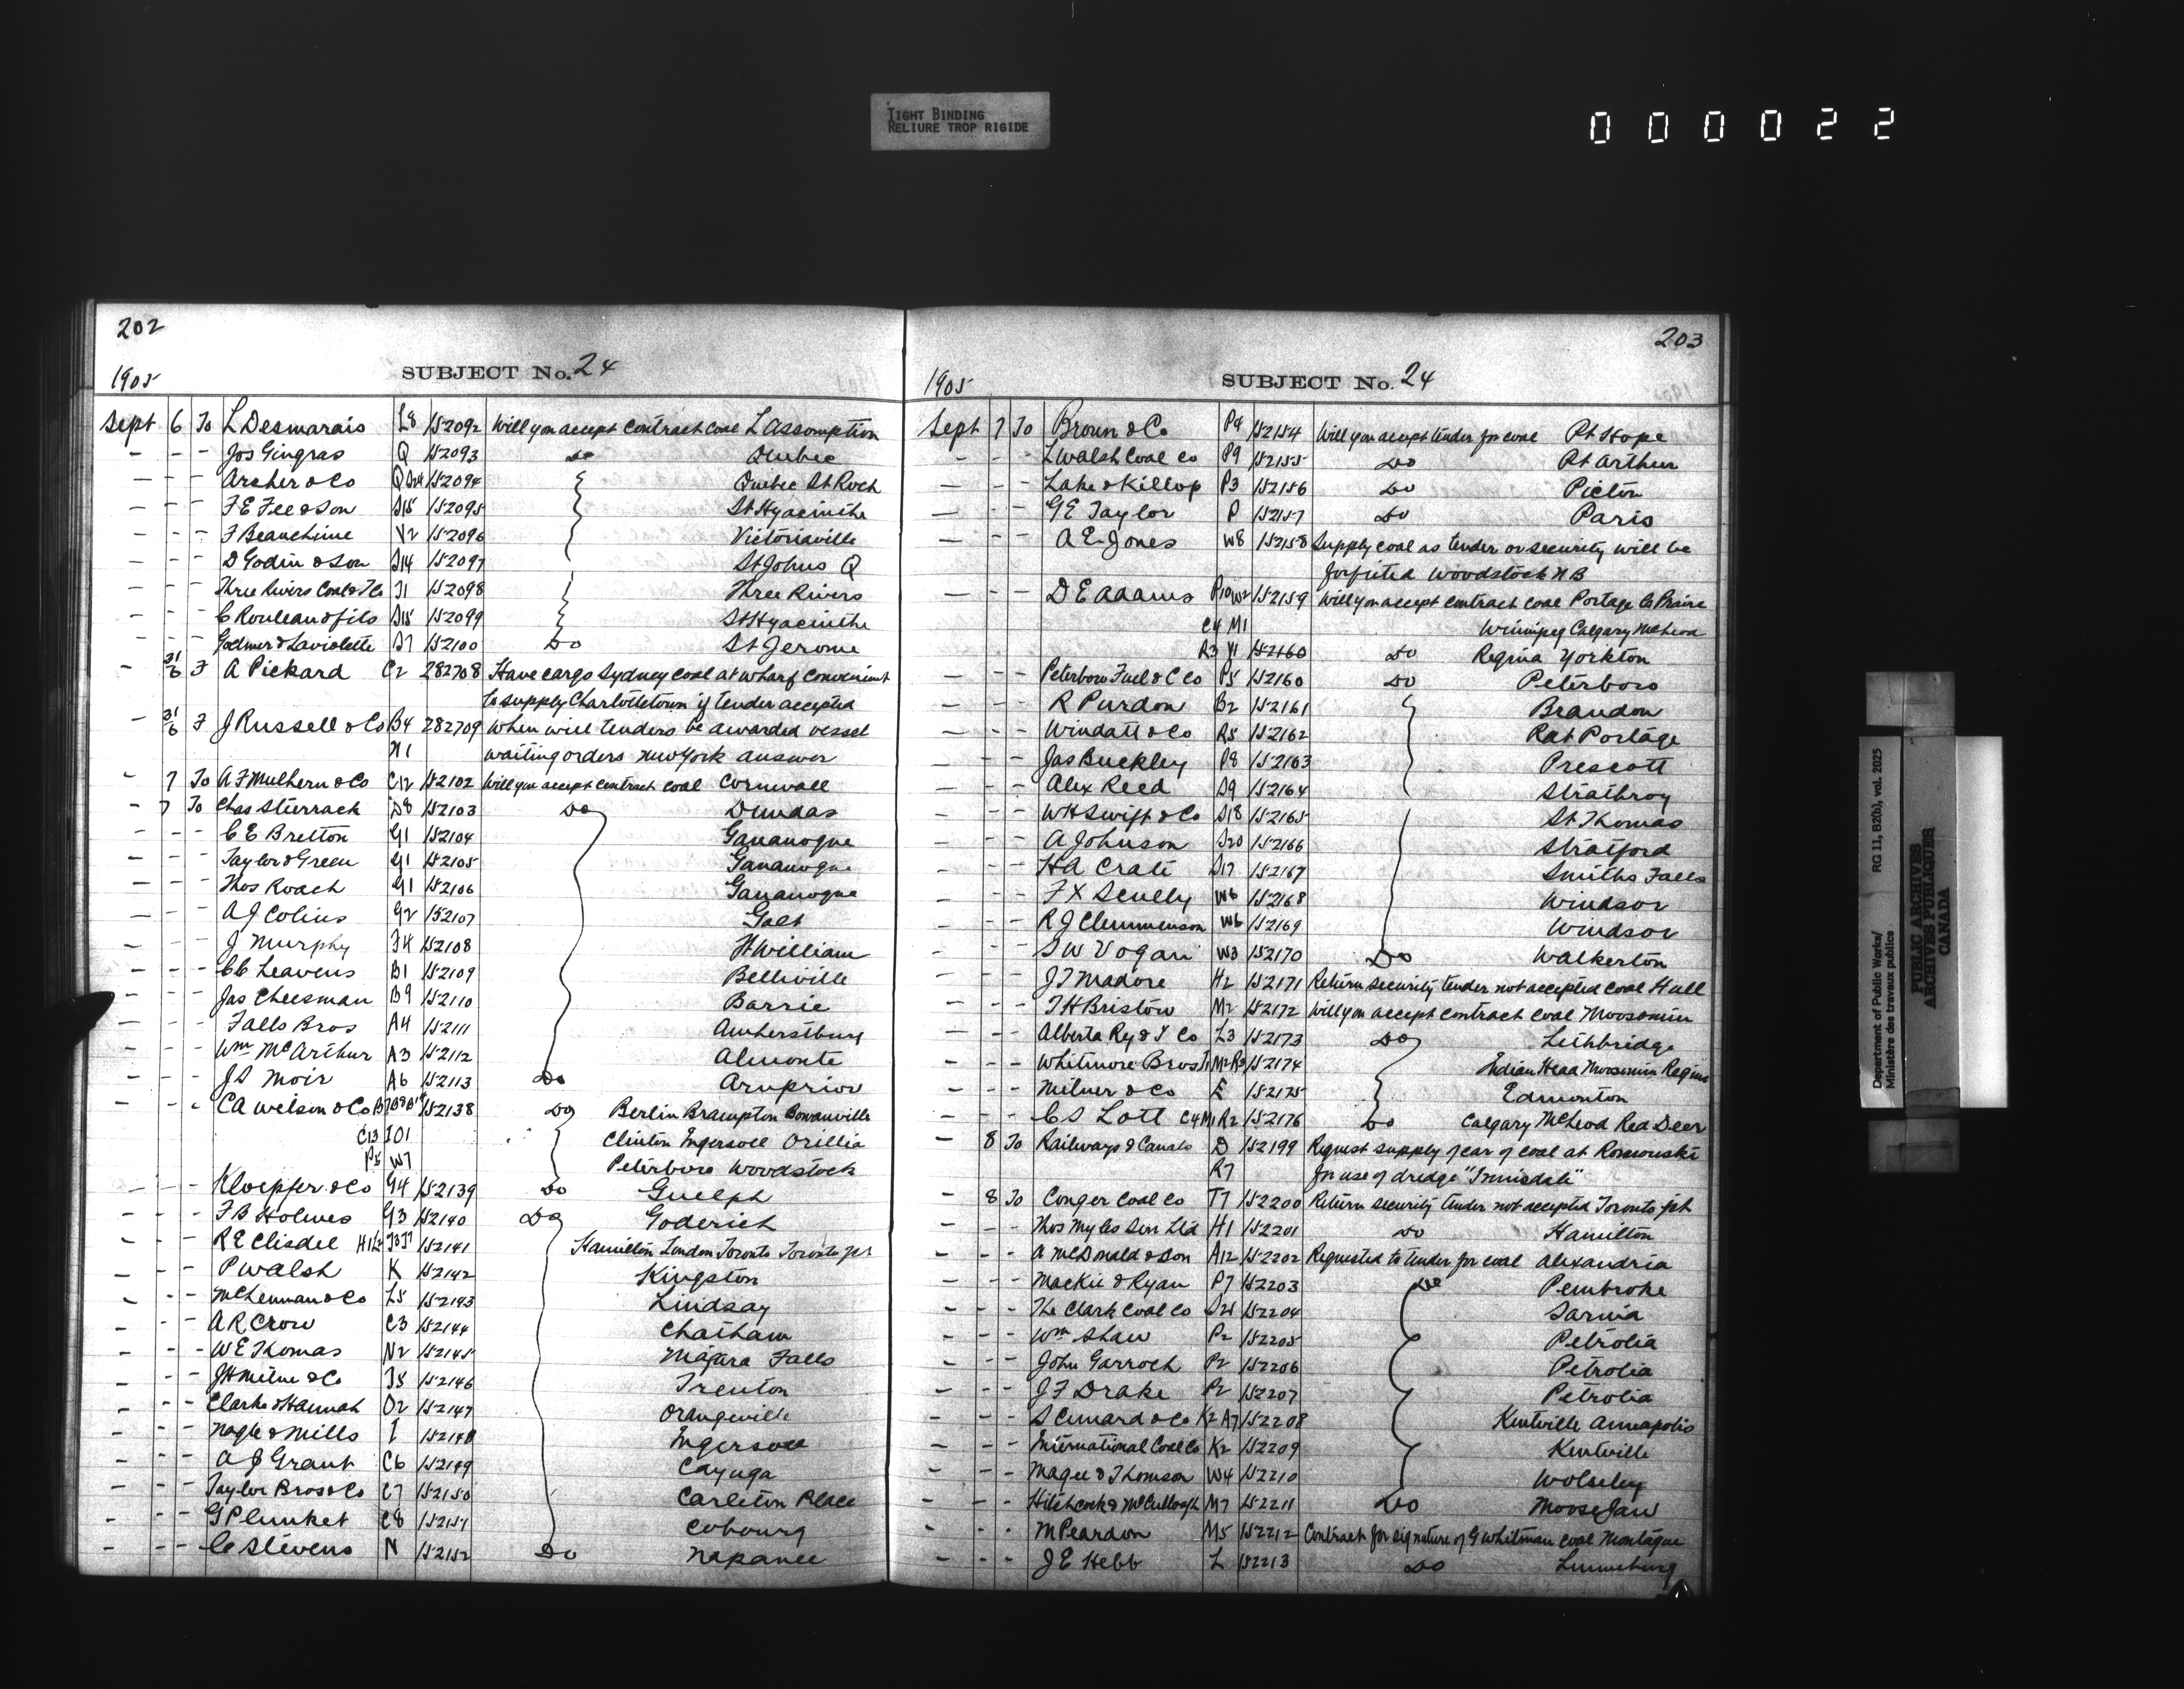 TIGHT BINDING
RELIURE TROP RIGIDE
000022
202
1905
SUBJECT No. 24
Sept 6 To L Desmarais L8 152092 Will you accept contract coal L Assomption
- - - Jos Gingras Q 152093 Do Quebec
- - - Archer & Co Q S24 152094 Quebec St Roch
- - - F E Fee & Son S15 152095 St Hyacinthe
- - - F Beauchesne V2 152096 Victoriaville
- - - D Godin & Son S14 152097 St Johns Q
- - - Three Rivers Coal & Co T1 152098 Three Rivers
- - - C Rouleau & fils S15 152099 St Hyacinthe
- - - Godmer & Laviolette S7 152100 Do St Jerome
- 31/6 F A Pickard C2 282708 Have cargo Sydney coal at wharf convenient
to supply Charlottetown if tender accepted
- 31/6 F J Russell & Co B4 282709 When will tenders be awarded vessel
N1 waiting orders New York answer
- 7 To A F Mulhern & Co C12 152102 Will you accept contract coal Cornwall
- 7 To Chas Stierrach D8 152103 Do Dundas
- - - C E Bretton G1 152104 Gananoque
- - - Taylor & Green G1 152105 Gananoque
- - - Thos Roach G1 152106 Gananoque
- - - A J Colins G2 152107 Galt
- - - J Murphy F4 152108 Ft William
- - - C C Leavens B1 152109 Belleville
- - - Jas Cheesman B9 152110 Barrie
- - - Falls Bros A4 152111 Amherstburg
- - - Wm McArthur A3 152112 Almonte
- - - J S Moir A6 152113 Do Arnprior
- - - C A Welson & Co 152138 Do Berlin Brampton Bowanville
C13 I O1 Clinton Ingersoll Orillia
P5 W7 Peterboro Woodstock
- - - Kloepfer & Co G4 152139 Do Guelph
- - - F B Holmes G3 152140 Do Goderich
- - - R E Clisdel 152141 Hamilton London Toronto Toronto Jct
- - - P Walsh K 152142 Kingston
- - - McLennan & Co L5 152143 Lindsay
- - - A R Crow C3 152144 Chatham
- - - W E Thomas N2 152145 Niagara Falls
- - - J H Milne & Co T5 152146 Trenton
- - - Clarke & Hannah O2 152147 Orangeville
- - - Nagle & Mills I 152148 Ingersoll
- - - A J Grant C6 152149 Cayuga
- - - Taylor Bros & Co C7 152150 Carleton Place
- - - G Plunket C8 152151 Cobourg
- - - C Stevens N 152152 Do Napanee
203
1905
SUBJECT No. 24
Sept 7 To Brown & Co P4 152154 Will you accept tender for coal Pt Hope
- - - L Walsh Coal Co P9 152155 Do Pt Arthur
- - - Lake & Killop P3 152156 Do Picton
- - - G E Taylor P 152157 Do Paris
- - - A E Jones W8 152158 Supply coal as tender or security will be
forfeited Woodstock N B
- - - D E Adams P10 W2 152159 Will you accept contract coal Portage la Prairie
C4 M1 Winnipeg Calgary McLeod
R3 Y1 152160 Do Regina Yorkton
- - - Peterboro Fuel & C Co P5 152160 Do Peterboro
- - - R Purdon B2 152161 Brandon
- - - Windatt & Co R5 152162 Rat Portage
- - - Jas Buckley P8 152163 Prescott
- - - Alex Reed S9 152164 Strathroy
- - - W H Swift & Co S18 152165 St Thomas
- - - A Johnson S20 152166 Stratford
- - - H A Crate S17 152167 Smiths Falls
- - - F X Scully W6 152168 Windsor
- - - R J Clemmenson W6 152169 Windsor
- - - S W Vogan W3 152170 Do Walkerton
- - - J T Madore H2 152171 Return security tender not accepted coal Hull
- - - T H Bristow M2 152172 Will you accept contract coal Moosomin
- - - Alberta Ry & I Co L3 152173 Do Lethbridge
- - - Whitmore Bros I1 M2 R3 152174 Indian Head Moosomin Regina
- - - Milner & Co E 152175 Edmonton
- - - C S Lott C4 M1 R2 152176 Do Calgary McLeod Red Deer
- 8 To Railways & Canals D 152199 Request supply of car of coal at Romouski
R7 for use of dredge "Innisdale"
- 8 To Conger Coal Co T7 152200 Return security tender not accepted Toronto Jct
- - - Thos Myles Son Ltd H1 152201 Do Hamilton
- - - A McDonald & Son A12 152202 Requested to tender for coal Alexandria
- - - Mackie & Ryan P7 152203 Do Pembroke
- - - The Clark Coal Co S21 152204 Sarnia
- - - Wm Shaw P2 152205 Petrolia
- - - John Garroch P2 152206 Petrolia
- - - J F Drake P2 152207 Petrolia
- - - S Cunard & Co K2 A7 152208 Kentville Annapolis
- - - International Coal Co K2 152209 Kentville
- - - Magee & Thomson W4 152210 Wolseley
- - - Hitchcock & McCullough M7 152211 Do Moose Jaw
- - - M Peardon M5 152212 Contract for signature of G Whitman coal Montague
- - - J E Hebb L 152213 Do Lunenburg
Department of Public Works/ RG 11, B2(b), vol. 2025
Ministère des travaux publics
PUBLIC ARCHIVES
ARCHIVES PUBLIQUES
CANADA